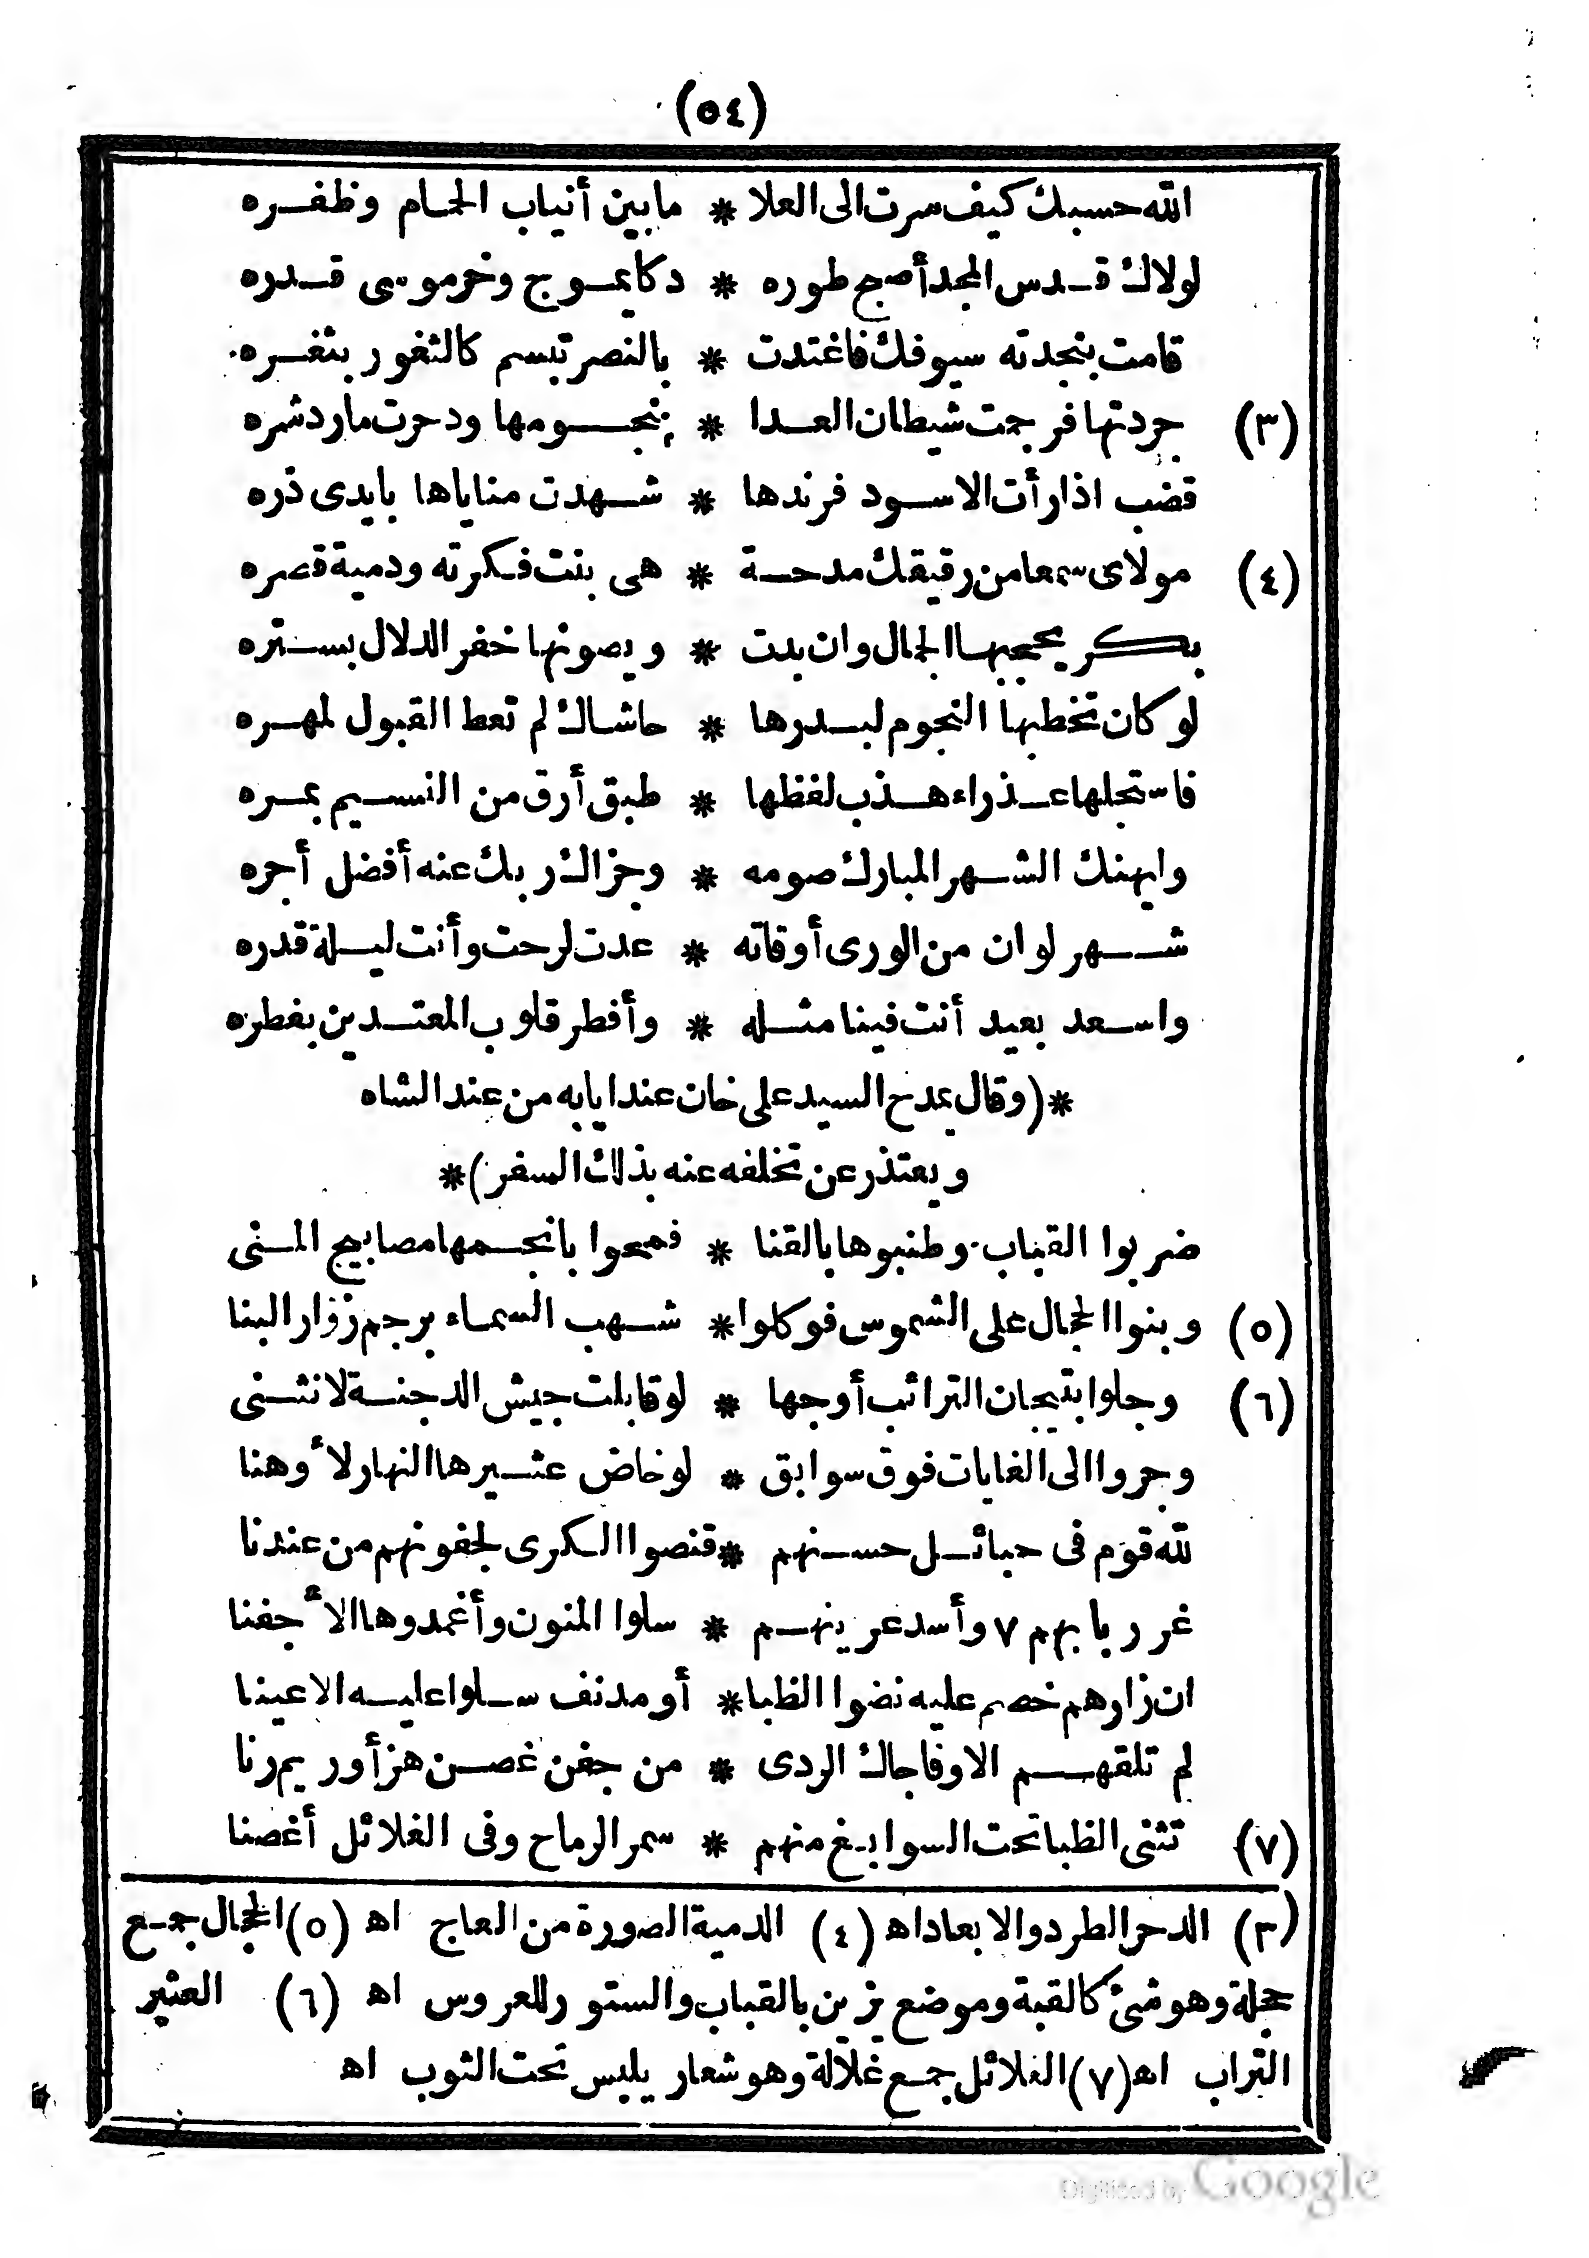 (٥٤)
الله حسبك كيف سرت الى العلا * ما بين أنياب الحمام وظفره
لولاك قدس المجد أصبح طوره * دكا يموج وخر موسى قدره
قامت بنجدته سيوفك فاغتدت * بالنصر تبسم كالثغور بثغره
(٣) جردتها فرجمت شيطان العدا * بنجومها ودحرت مارد شره
قضب اذا رأت الاسود فرندها * شهدت مناياها بايدى ذره
(٤) مولاى سمعا من رقيقك مدحة * هى بنت فكرته ودمية قصره
بكر يحجبها الجمال وان بدت * ويصونها خفر الدلال بستره
لو كان تخطبها النجوم لبدرها * حاشاك لم تعط القبول لمهره
فاستجلها عذراء هذب لفظها * طبق أرق من النسيم بمره
وليهنك الشهر المبارك صومه * وجزاك ربك عنه أفضل أجره
شهر لو ان من الورى أوقاته * عدت لرحت وأنت ليلة قدره
واسعد بعيد أنت فينا مثله * وأفطر قلوب المعتدين بفطره
*(وقال يمدح السيد على خان عند ايابه من عند الشاه
ويعتذر عن تخلفه عنه بذلك السفر)*
ضربوا القباب وطنبوها بالقنا * فمحوا بانجمها مصابيح المنى
(٥) وبنوا الحجال على الشموس فوكلوا * شهب السماء برجم زوار البنا
(٦) وجلوا بتيجان الترائب أوجها * لو قابلت جيش الدجنة لانثنى
وجروا الى الغايات فوق سوابق * لو خاض عثيرها النهار لأوهنا
لله قوم فى حبائل حسنهم * قنصوا الكرى لجفونهم من عندنا
غر ربابهم ٧ وأسد عرينهم * سلوا المنون وأغمدوها الأجفنا
ان زارهم خصم عليه نضوا الظبا * أو مدنف سلوا عليه الاعينا
لم تلقهم الا وفاجاك الردى * من جفن غصن هز أو ريم رنا
(٧) تثنى الظبا تحت السوابغ منهم * سمر الرماح وفى الغلائل أغصنا
(٣) الدحر الطرد والابعاد اه (٤) الدمية الصورة من العاج اه (٥) الحجال جمع
حجلة وهو شئ كالقبة وموضع يزين بالقباب والستور للعروس اه (٦) العثير
التراب اه (٧) الغلائل جمع غلالة وهو شعار يلبس تحت الثوب اه
Digitized by Google